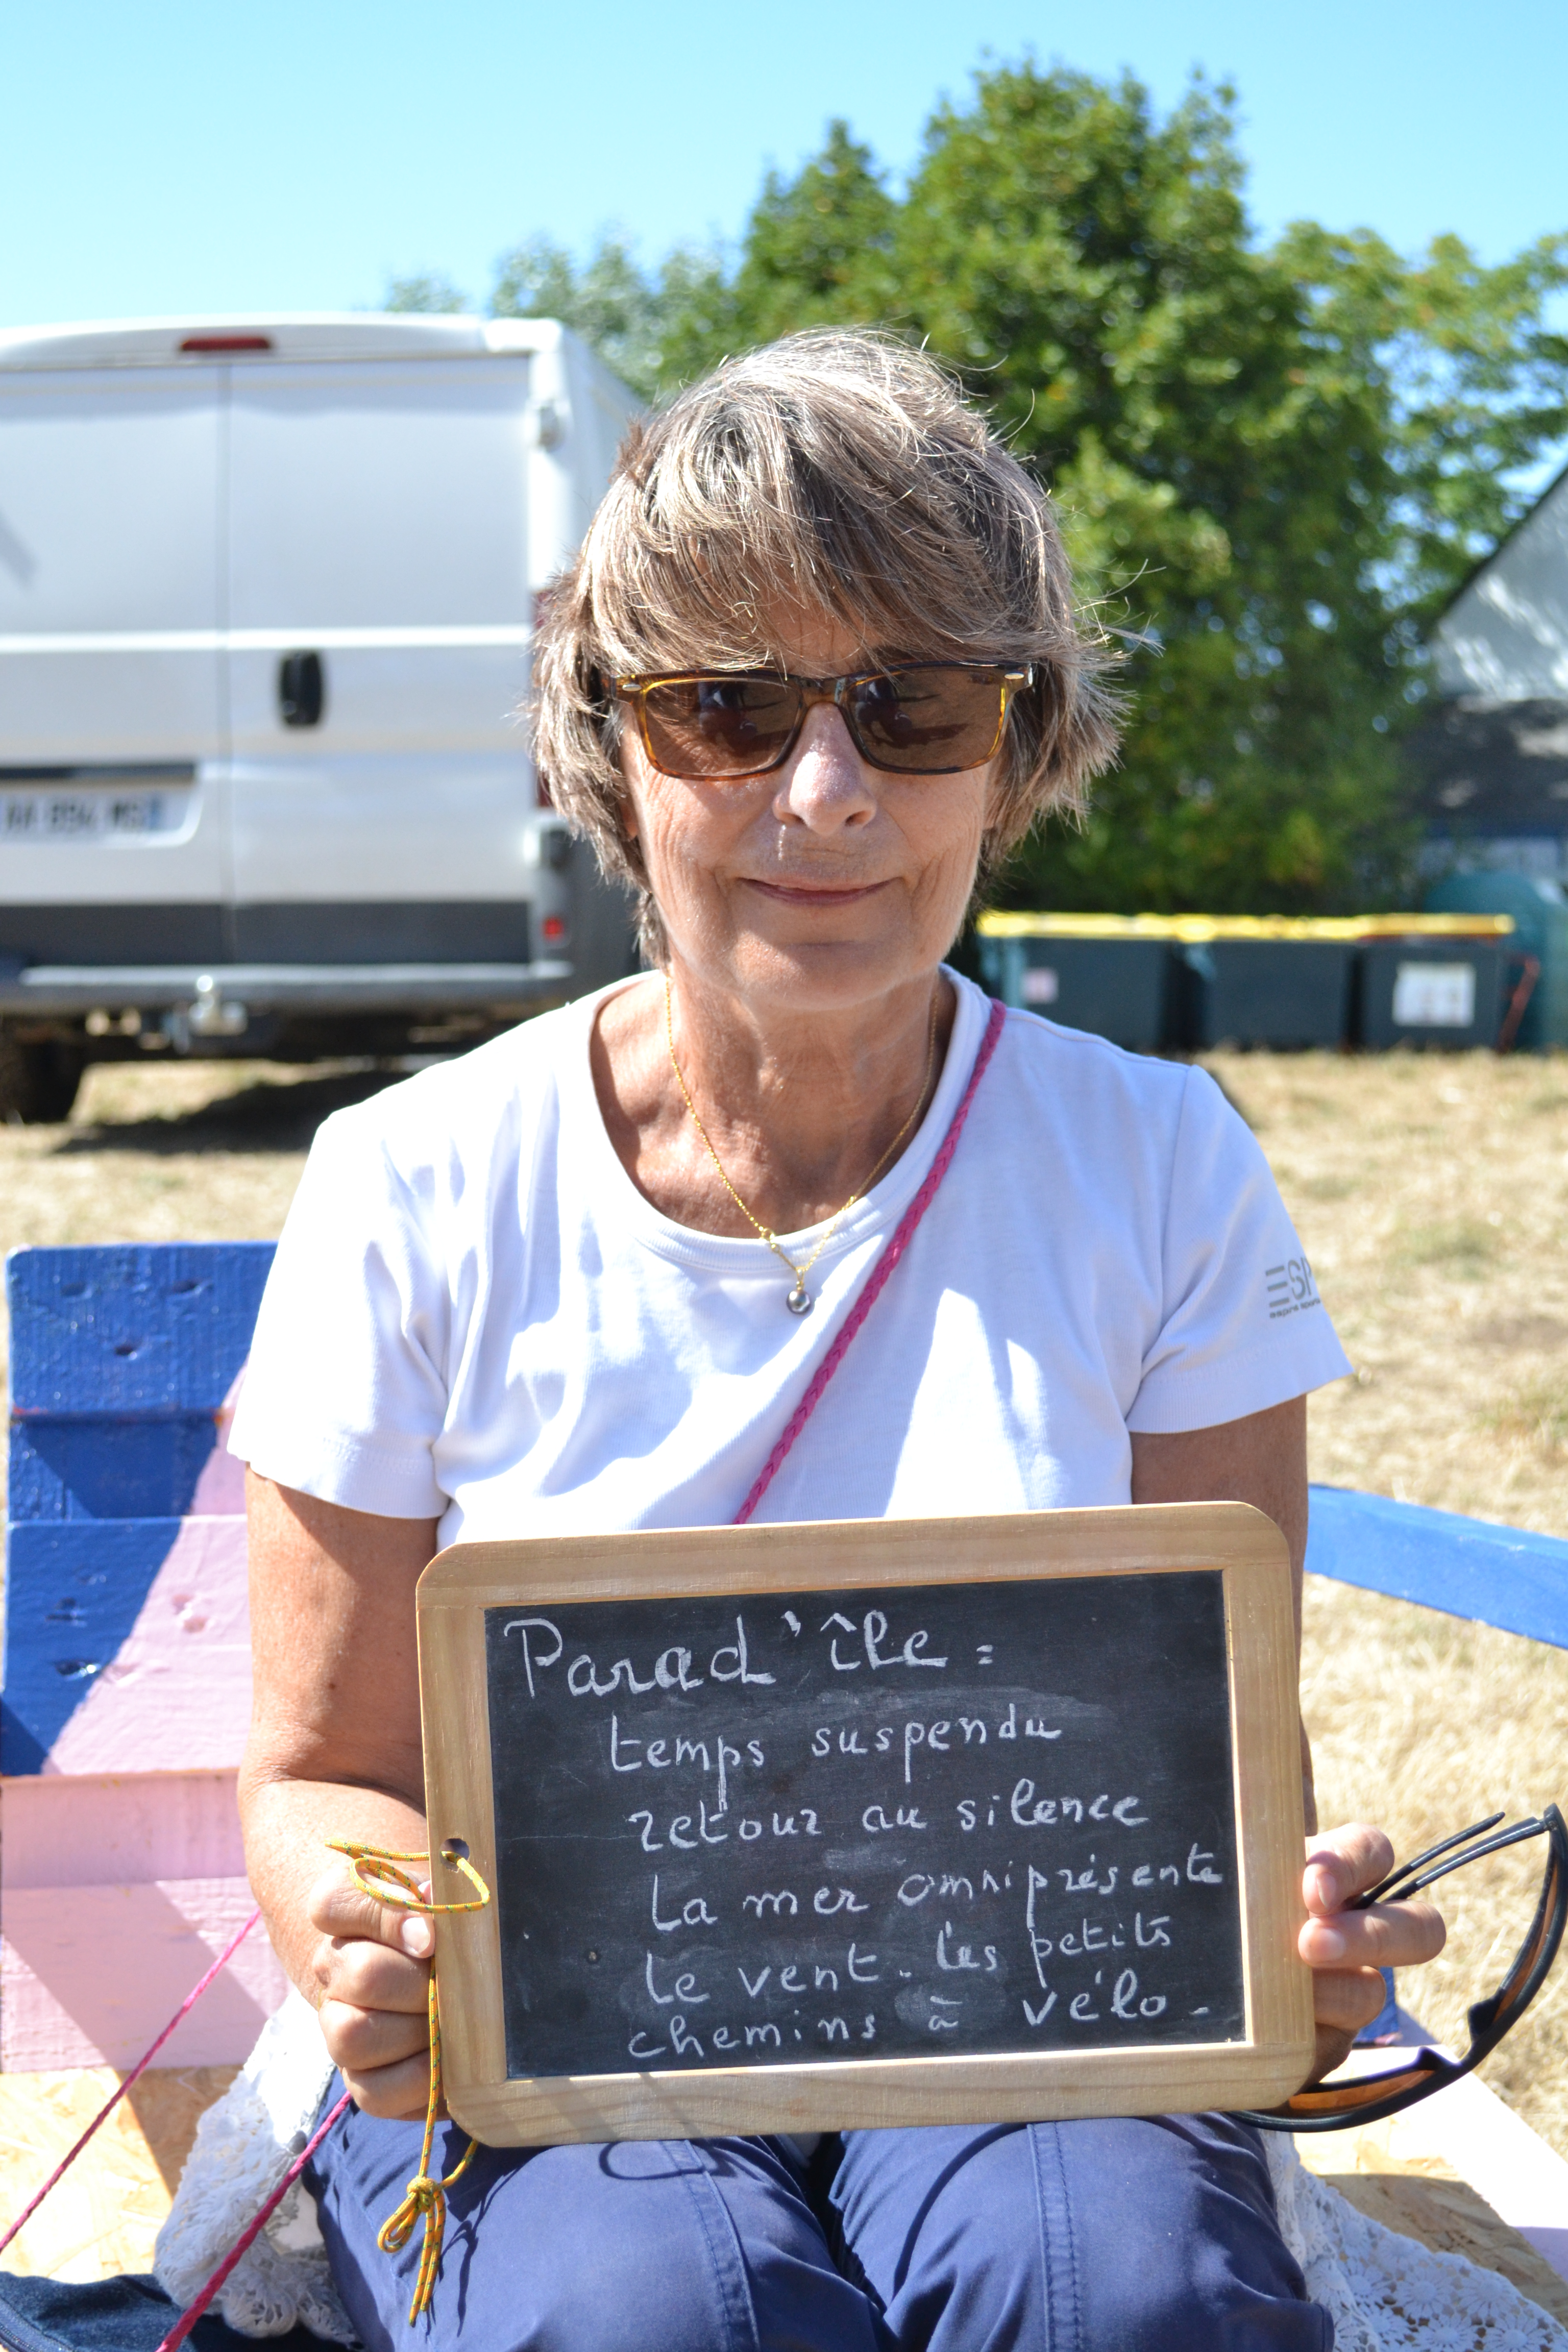 AA 894 MS
ESP
Parad'île =
temps suspendu
retour au silence
La mer omniprésente
le vent. les petits
chemins à vélo -